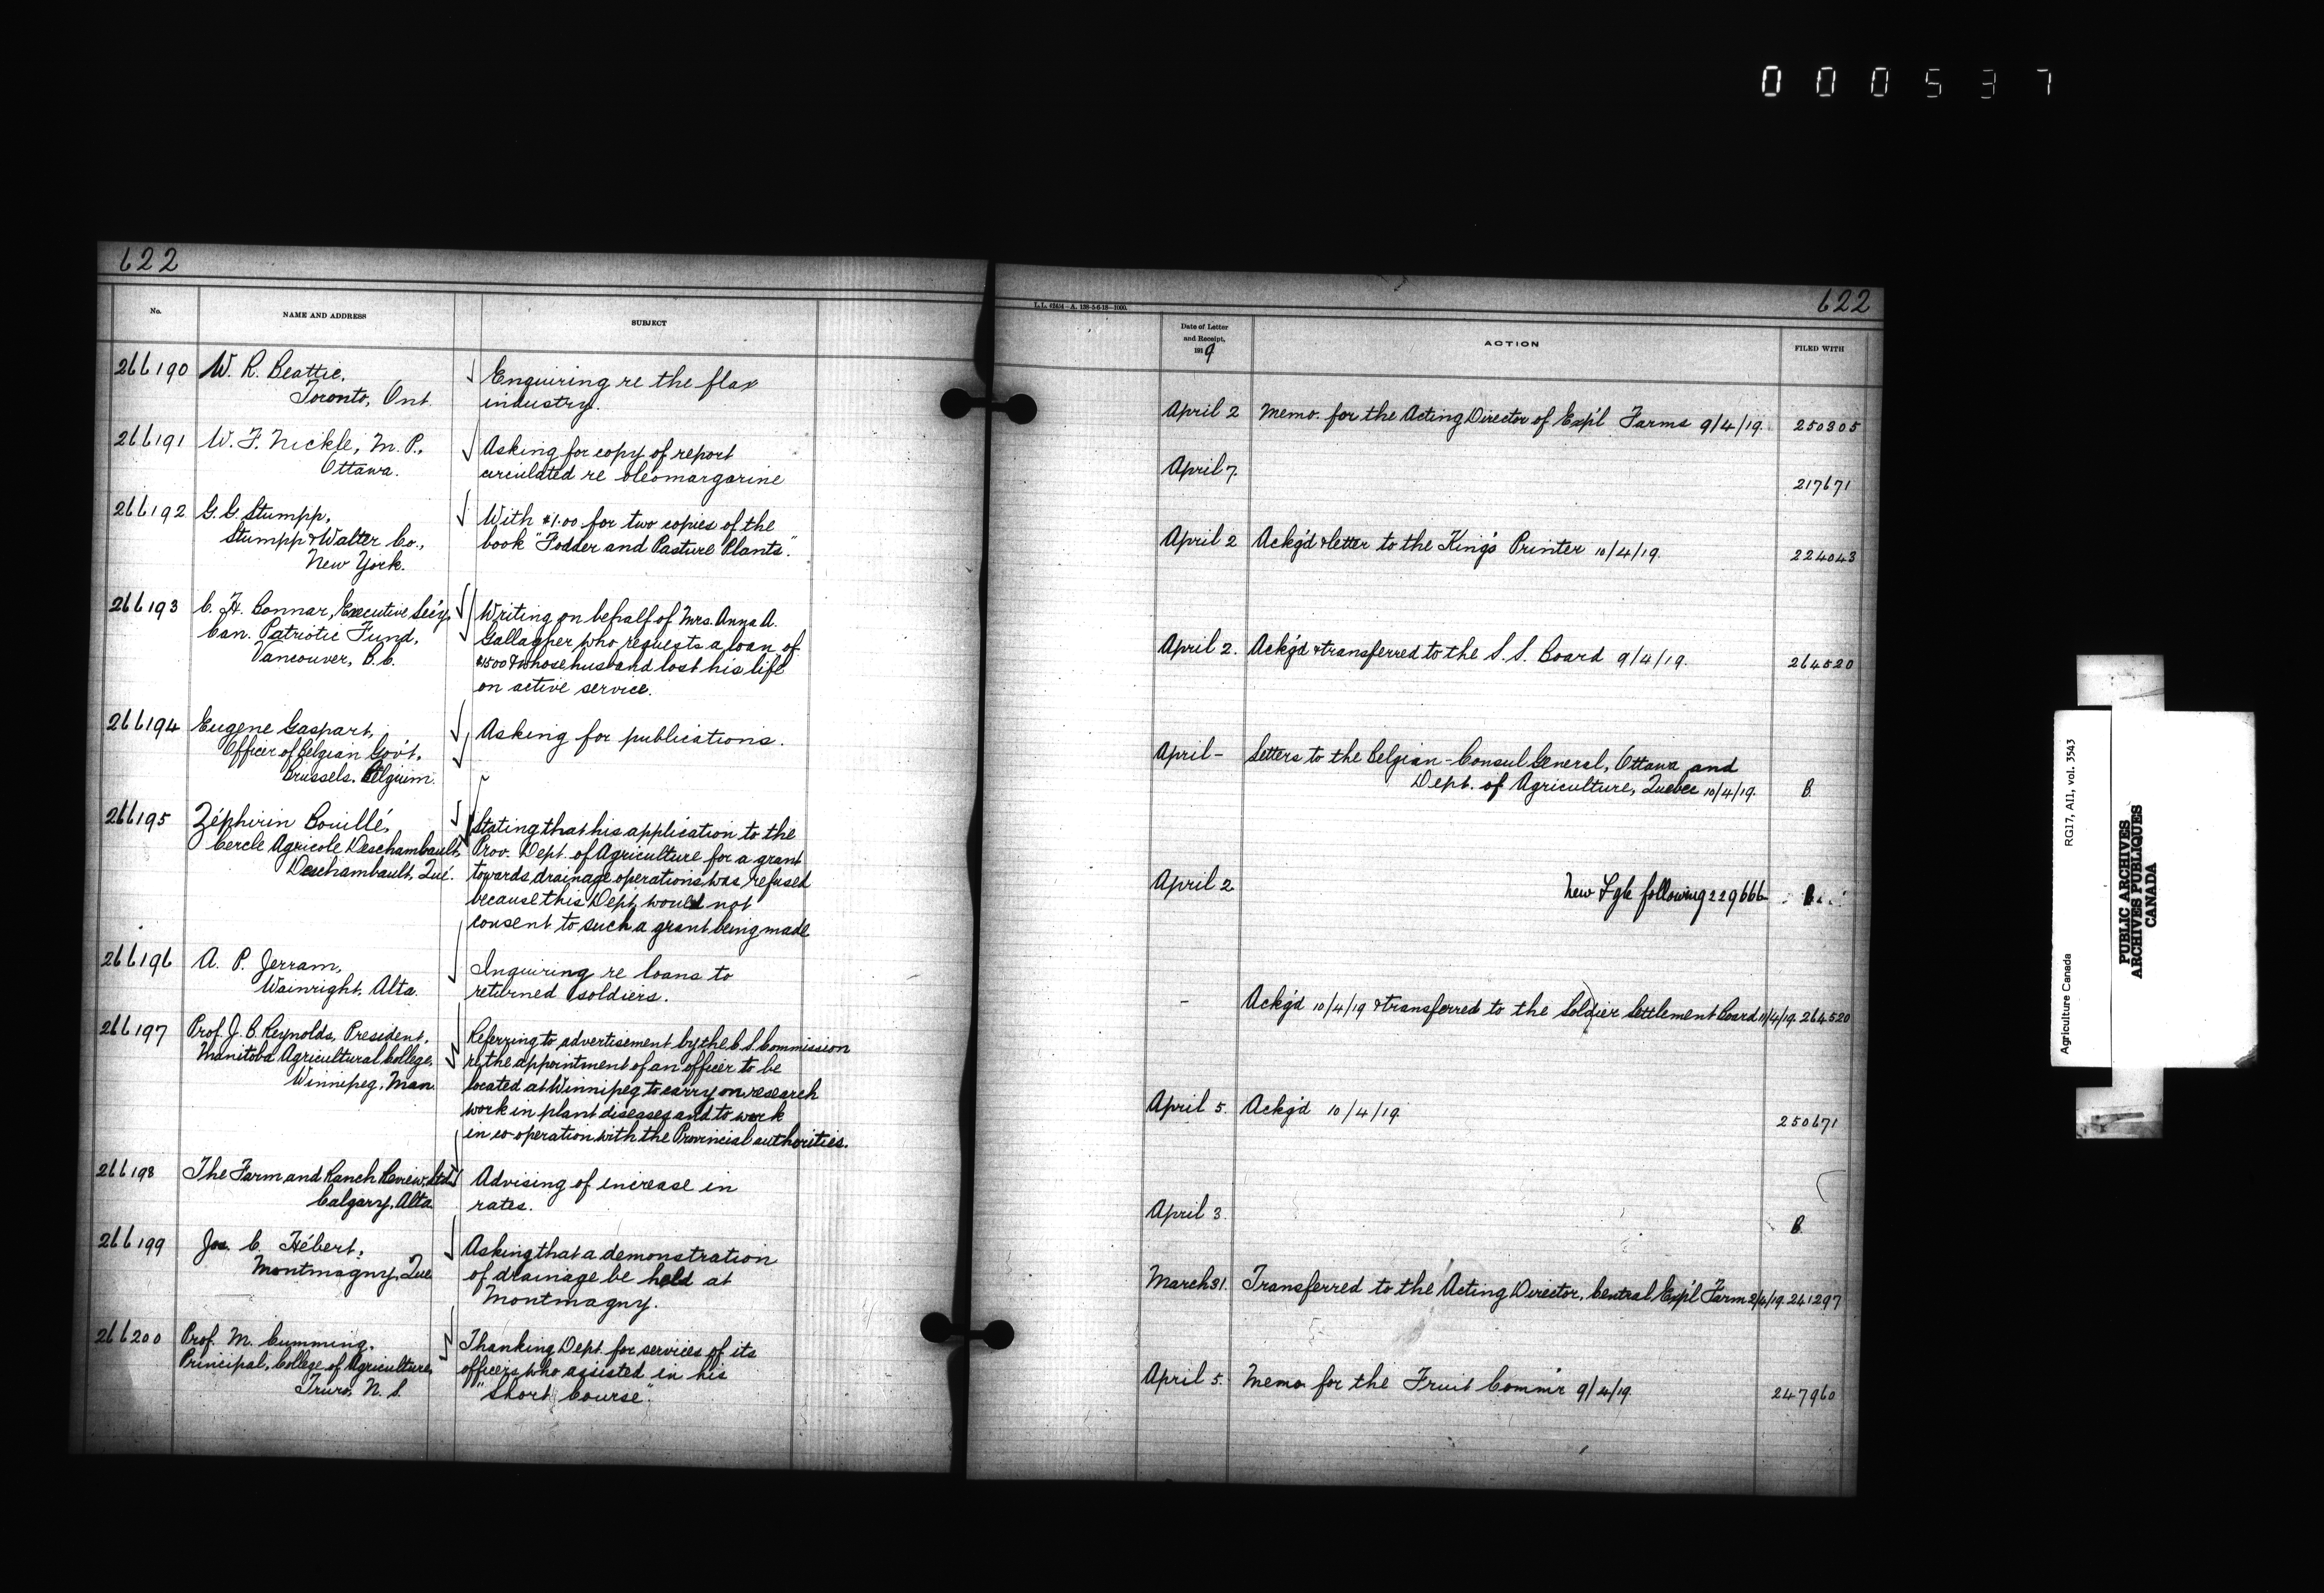 000537
622
No.
NAME AND ADDRESS
SUBJECT
266190
W. R. Beattie,
Toronto, Ont.
Enquiring re the flax
industry.
266191
W. F. Nickle, M. P.,
Ottawa.
Asking for copy of report
circulated re oleomargarine
266192
G. G. Stumpp,
Stumpp & Walter Co.,
New York.
With $1.00 for two copies of the
book "Fodder and Pasture Plants".
266193
C. H. Bonnar, Executive Sec'y,
Can. Patriotic Fund,
Vancouver, B.C.
Writing on behalf of Mrs. Anna A.
Gallagher who requests a loan of
$1500 & whose husband lost his life
on active service.
266194
Eugene Gaspart,
Officer of Belgian Gov't,
Brussels, Belgium.
Asking for publications.
266195
Zéphirin Bouillé,
Cercle Agricole Deschambault,
Deschambault, Qué.
Stating that his application to the
Prov. Dept. of Agriculture for a grant
towards drainage operations was refused
because this Dept. would not
consent to such a grant being made
266196
A. P. Jerram,
Wainright, Alta.
Inquiring re loans to
returned soldiers.
266197
Prof. J. B. Reynolds, President,
Manitoba Agricultural College,
Winnipeg, Man.
Referring to advertisement by the C. S. Commission
re the appointment of an officer to be
located at Winnipeg to carry on research
work in plant diseases and to work
in co-operation with the Provincial authorities.
266198
The Farm and Ranch Review, Ltd.
Calgary, Alta.
Advising of increase in
rates.
266199
Jos. C. Hébert,
Montmagny, Que.
Asking that a demonstration
of drainage be held at
Montmagny.
266200
Prof. M. Cumming,
Principal, College of Agriculture,
Truro, N. S.
Thanking Dept. for services of its
officers who assisted in his
"Short Course".
622
Date of Letter
and Receipt,
1919
ACTION
FILED WITH
April 2
Memo. for the Acting Director of Exp'l Farms 9/4/19.
250305
April 7.
217671
April 2
Ackg'd & letter to the King's Printer 10/4/19.
224043
April 2.
Ackg'd & transferred to the S. S. Board 9/4/19.
264520
April -
Letters to the Belgian-Consul General, Ottawa and
Dept. of Agriculture, Quebec 10/4/19.
B.
April 2
following 229666
-
Ackg'd 10/4/19 & transferred to the Soldier Settlement Board 11/4/19.
264520
April 5.
Ackg'd 10/4/19
250671
April 3.
B.
March 31.
Transferred to the Acting Director, Central Exp'l Farm 2/4/19.
241297
April 5.
Memo for the Fruit Comm'r 9/4/19.
247960
Agriculture Canada
RG17, AII, vol. 3543
PUBLIC ARCHIVES
ARCHIVES PUBLIQUES
CANADA